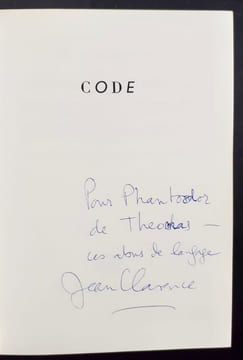 CODE
Pour Phantodor
de Theokas —
ces abus de langage
Jean Clarence